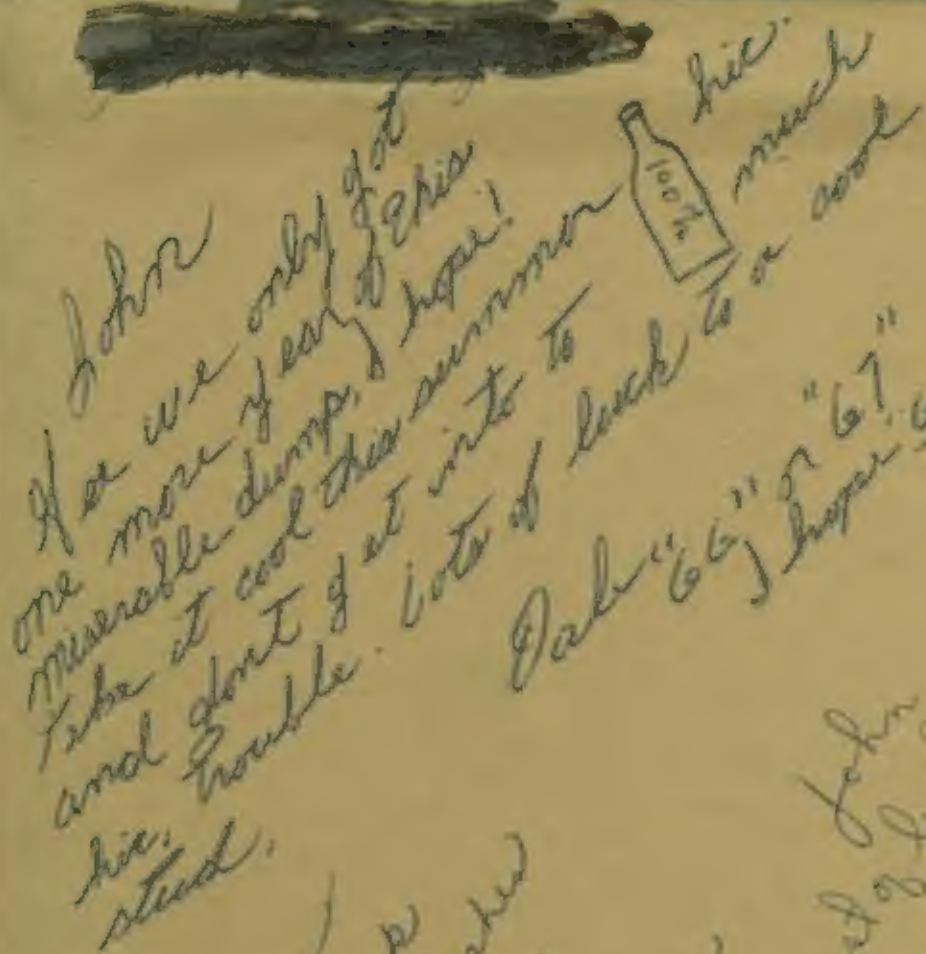 John
Gee we only got
one more year of this
miserable dump, I hope!
Take it cool this summor 100% hic.
and dont get into to much
hic, trouble. Lots of luck to a cool
stud.
Dale "66" or "67"
I hope
John